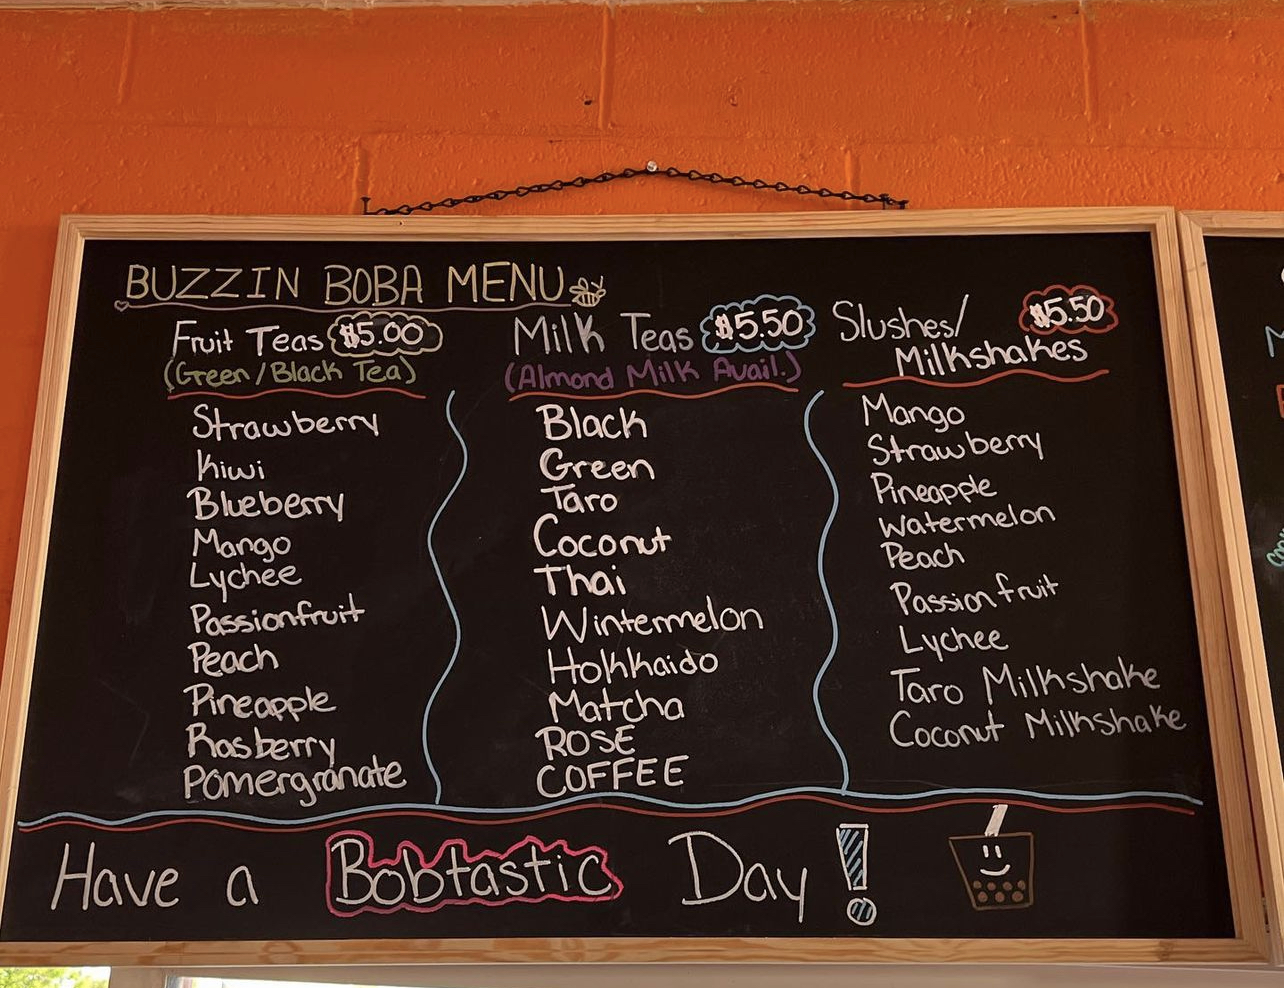 BUZZIN BOBA MENU
Fruit Teas $5.00
(Green/Black Tea)
Strawberry
Kiwi
Blueberry
Mango
Lychee
Passionfruit
Peach
Pineapple
Rasberry
Pomergranate
Milk Teas $5.50
(Almond Milk Avail.)
Black
Green
Taro
Coconut
Thai
Wintermelon
Hokkaido
Matcha
ROSE
COFFEE
Slushes/ $5.50
Milkshakes
Mango
Strawberry
Pineapple
Watermelon
Peach
Passionfruit
Lychee
Taro Milkshake
Coconut Milkshake
Have a Bobtastic Day!